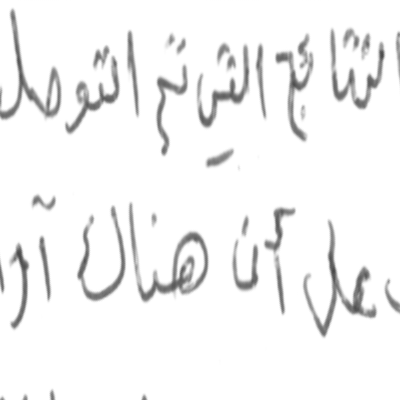 النتائج التي تم التوصل
على أن هناك آرا